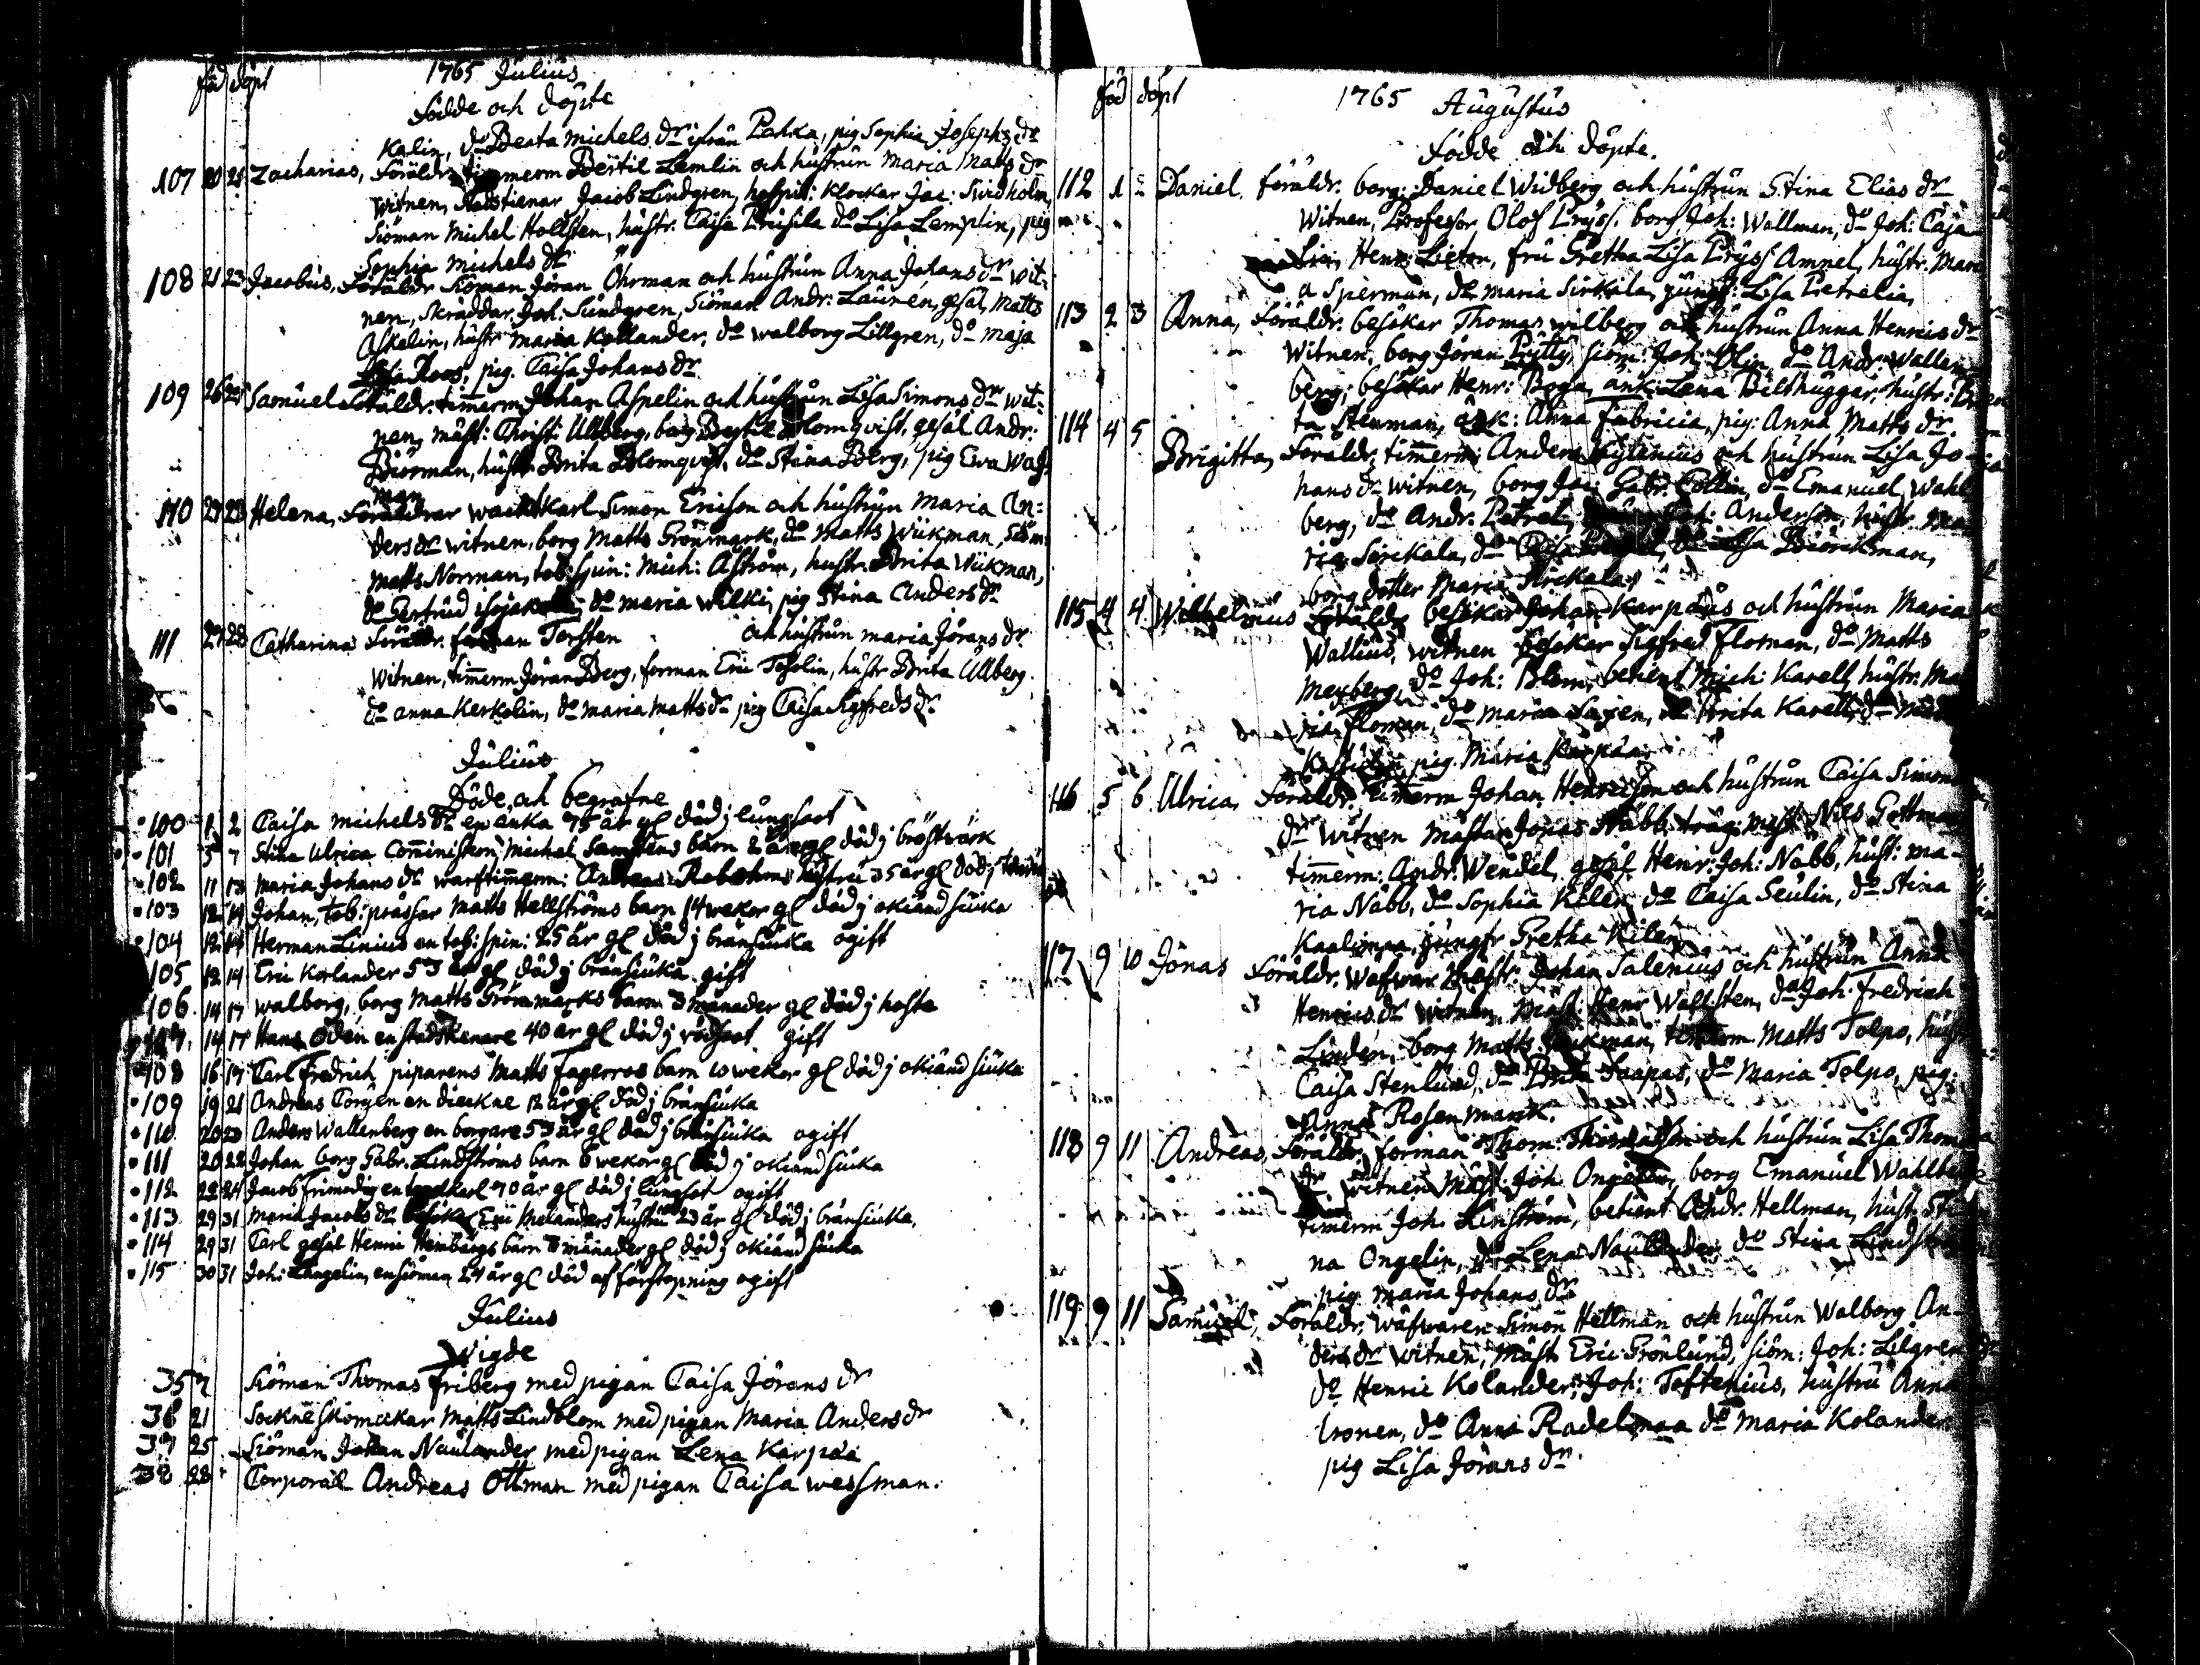 föd döpt 1765 Julius
Födde och döpte
Kalin, do Beata Michels dr ifrån Pahka, pig Sophia Josephs dr
107 20 21 Zacharias, Föräldr. timmerm Bertil Lemlin och hustrun Maria Matts dr
witnen, Jacob Lindgren, hospit: klockar Jac:
Siöman Michel Hollsten, hustr. Caisa do Lisa Lemplin, pig
Sophia Michels dr
108 21 23 Jacobus, Föräldr Siöman Jöran Öhrman och hustrun Anna Johans dr wit:
nen, Skräddar Joh: Sundgren, Siöman Andr: Laurén, gesäl Matts
Askelin, hustr Maria Kollander, do Walborg Lillgren, do Maja
Lisa Roos, pig. Caisa Johans dr
109 26 28 Samuel Föräldr. timerm Johan Aspelin och hustrun Lisa Simons dr wit:
nen, mäst: Christ: Ullberg, borg Bertil Blomqvist, gesäl Andr:
Biörman, hustr Brita Blomqvist, do Stina Berg, pig Ewa Wass
man
110 27 28 Helena, Föräldrar wachtkarl Simon Ericson och hustrun Maria An:
ders dr witnen, borg Matts Grönmark, do Matts Wiikman, siöm:
Matts Norman, tob: spin: Mich: Åström, hustr. Brita Wiikman,
do Gertrud do Maria Wilki, pig Stina Anders dr
111 27 28 Catharina Föräldr. forman Torsten och hustrun Maria Jörans dr.
Witnen, timmerm Jöran Berg, forman Eric Teselin, hustr Brita Ullberg
do Anna Kerkolin, do Maria Matts dr pig Caisa Sigfreds dr
Julius
Döde och begrafne
100 1 2 Caisa Michels dr en enka 75 år gl död j lungsoot
101 5 7 Stina Ulrica Comministern Michal barn 2 år gl död j bröstwärk
102 11 13 Maria Johans dr warftimmerm: Andreas hustru 35 år gl död j
103 12 14 Johan, tob: prässar Matts Hellströms barn 14 wekor gl död j okiänd siuka
104 12 14 Herman Linius en tob: spin: 25 år gl död j bränsiuka ogift
105 12 14 Eric Korlander 53 år gl död j bränsiuka gift
106 14 17 Walborg, borg Matts Grönmarks barn 3 månader gl död j hosta
107 14 17 Hans Oden en stadskenare 40 år gl död j rödsoot gift
108 16 17 Carl Fredrich piparens Matts Fagerroos barn 10 wekor gl död j okiänd siuka
109 19 21 Andreas Corgén en dieckne 12 år gl död j bränsiuka
110 20 Anders Wallenberg en borgare 53 år gl död j bränsiuka ogift
111 20 22 Johan borg Gabr. Lindströms barn 6 wekor gl död j okiänd siuka
112 22 24 Jacob Frimodig en karl 70 år gl död j lungsot ogift
113 29 31 Maria Jacobs dr besökar Eric Melanders hustru 23 år gl död j bränsiuka
114 29 31 Carl gesäl Henric Hembärgs barn 8 månader gl död j okiänd siuka
115 30 31 Joh: Langelin, en siöman 24 år gl död af förstopning ogift
Julius
Wigde
35 7 Siöman Thomas Friberg med pigan Caisa Jörans dr
36 21 Sockne skomakar Matts Lindblom med pigan Maria Anders dr
37 25 Siöman Johan Naulander med pigan Lena Karpää
38 28 Corporal Andreas Ottman med pigan Caisa Wessman.
föd döpt 1765 Augustus
Födde och döpte.
112 1 2 Daniel. föräldr. borg: Daniel Widberg och hustrun Stina Elias dr
Witnen, Professor Olof Pryss. borg Joh: Wallman, do Joh: Caja
Henr: Lieton, fru Gretha Lisa Pryss Amnel, hustr. Mari
a Sperman, do Maria Sirkala, jungf: Lisa Petrelia,
113 2 3 Anna, Föräldr. besökar Thomas Wilberg och hustrun Anna Henrics dr
Witnen, borg Jöran Prytty, siöm: Joh: Olin, do Andr: Wallen
berg; besökar Henr: Boga, ank: Lena Bilthuggar, hustr: Bri
ta Stenman, enk: Anna Fabricia, pig: Anna Matts dr.
114 4 5 Brigitta, Föräldr. timerm: Anders och hustrun Lisa Jo
hans dr witnen, borg Jac: Gabr. Collin, do Emanuel Wahl
berg, do Andr. Petrel, Joh: Anderson, hustr. Ma
ria Sirckala, do Caisa Biörckman,
borg dotter Maria Sirckala
115 4 4 Wilhelmus Föräldr besökar Johan Karpäus och hustrun Maria
Wallius, witnen besökar Sigfred Floman, do Matts
Mexberg, do Joh: Blom, betient Mich: Karell, hustr. Ma
ria Floman, do Maria Saxen, do Brita Karell, do
pig Maria Karpää
116 5 6 Ulrica, Föräldr. timerm Johan Henricson och hustrun Caisa Simons
dr witnen mästar Jonas Näbb, träg: mäst: Nils Gottman
timerm: Andr: Wendel, gesäl Henr: Joh: Nabb, hust: Ma-
ria Näbb, do Sophia Kilen, do Caisa Seulin, do Stina
Kaalimaa, jungfr Gretha Kilen
117 9 10 Jonas Föräldr. Mästr. Johan Salenius och hustrun Anna
Henrics dr witnen, Mäst: Henr Wallsten, do Joh: Fredrich
Linden, borg Matts timerm Matts Tolpo, hust
Caisa Stenlund, do Brita Saapas, do Maria Tolpo, pig:
Anna Rosenmark.
118 9 11 Andreas, Föräldr. forman Thom: Thomasson och hustrun Lisa Thomas
dr. witnen mäst: Joh Ongelin, borg Emanuel Wahlberg
timerm Joh: Linström, betient Andr. Hellman, hust. Sti
na Ongelin, do Lena Naulander, do Stina Lindström
pig Maria Johans dr
119 9 11 Samuel, Föräldr. wäfwaren Simon Hellman och hustrun Walborg An
ders dr witnen, mäst Eric Grönlund, siöm: Joh: Lilgren
do Henric Kolander, Joh: Toftenius, hustru Anna
Ironen, do Anna Radelmaa do Maria Kolander
pig Lisa Jörans dr.